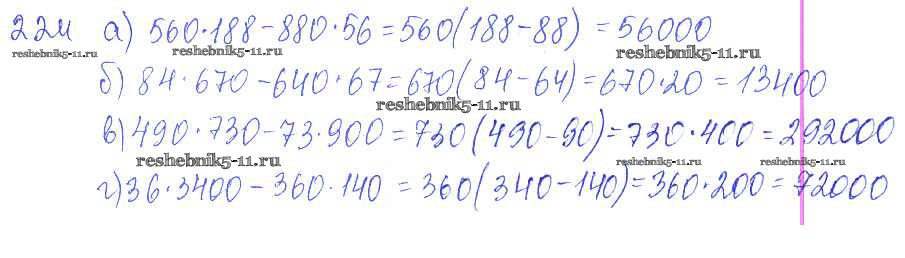 224 а) 560·188-880·56=560(188-88) = 56000
reshebnik5-11.ru reshebnik5-11.ru reshebnik5-11.ru
б) 84·670-640·67=670(84-64)=670·20=13400
reshebnik5-11.ru
в) 490·730-73·900=730(490-90)=730·400=292000
reshebnik5-11.ru reshebnik5-11.ru reshebnik5-11.ru
г) 36·3400-360·140 = 360(340-140)=360·200=72000